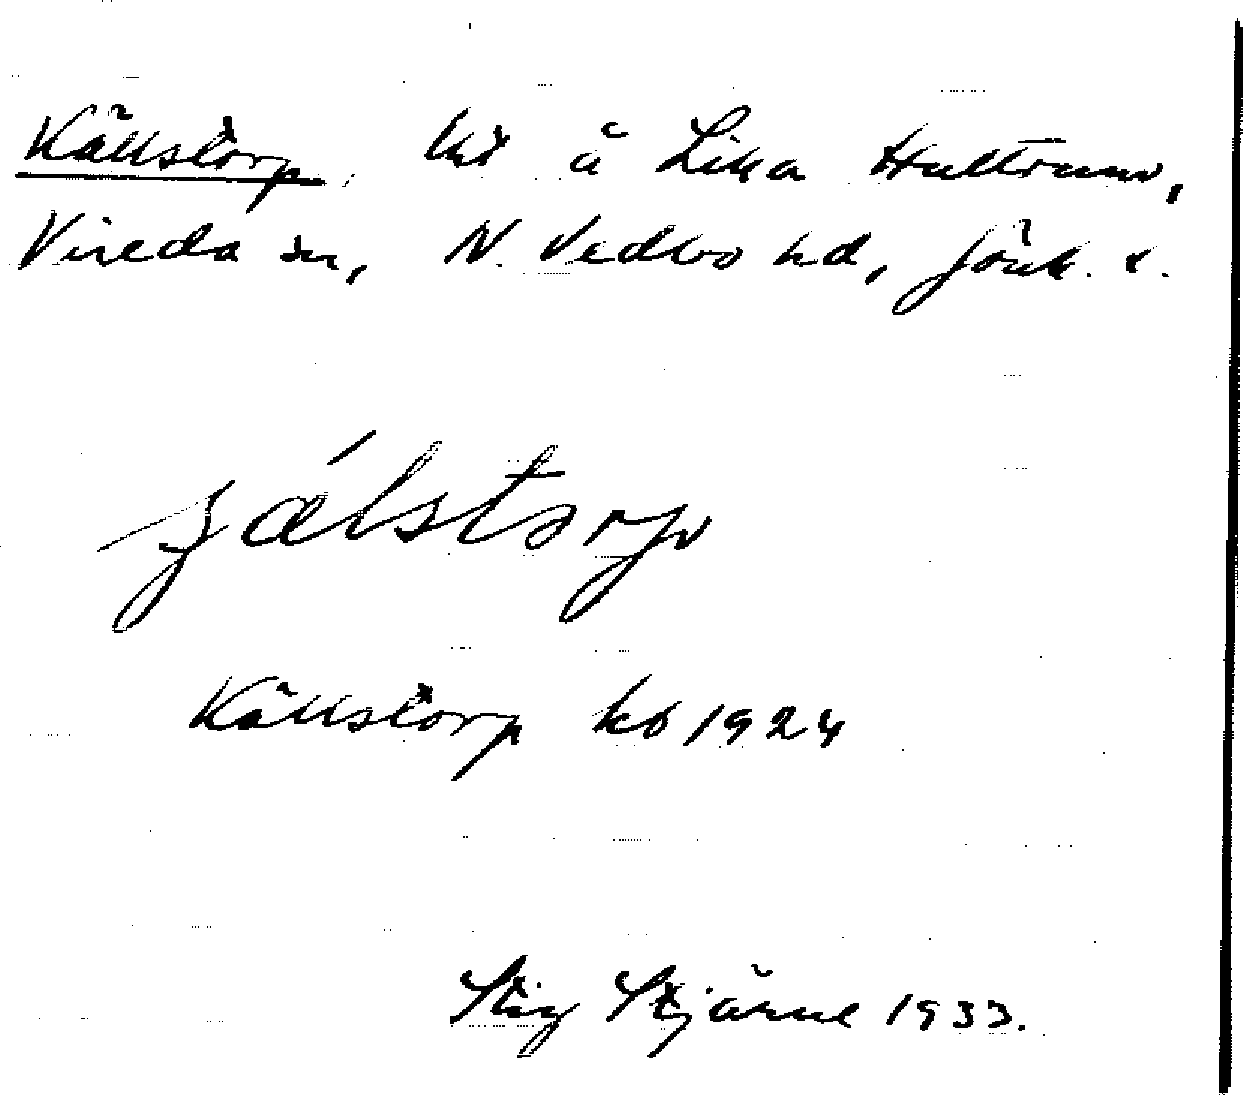 Källstorp, ht å Lilla Hultrum,
Vireda sn, N. Vedbo hd, Jönk. l.
ʒálstorp
Källstorp kb 1924
Stig Stjärne 1933.